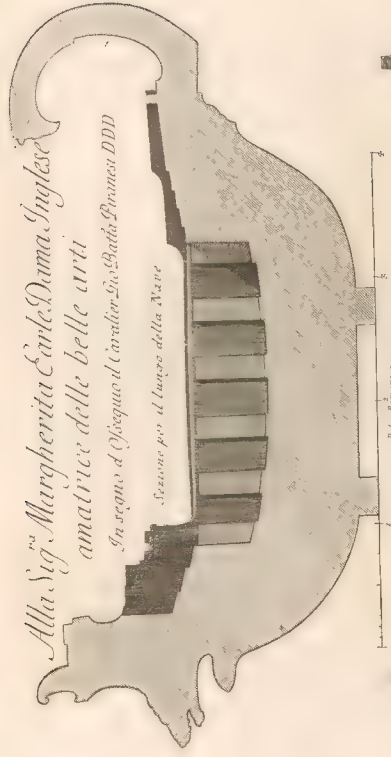 Alla Sig.ra Margherita Earle Dama Inglese
amatrice delle belle arti
In segno d'Ossequio il Cavalier Gio Batta Piranesi DDD
Sezione per il lungo della Nave
1
2
3
4